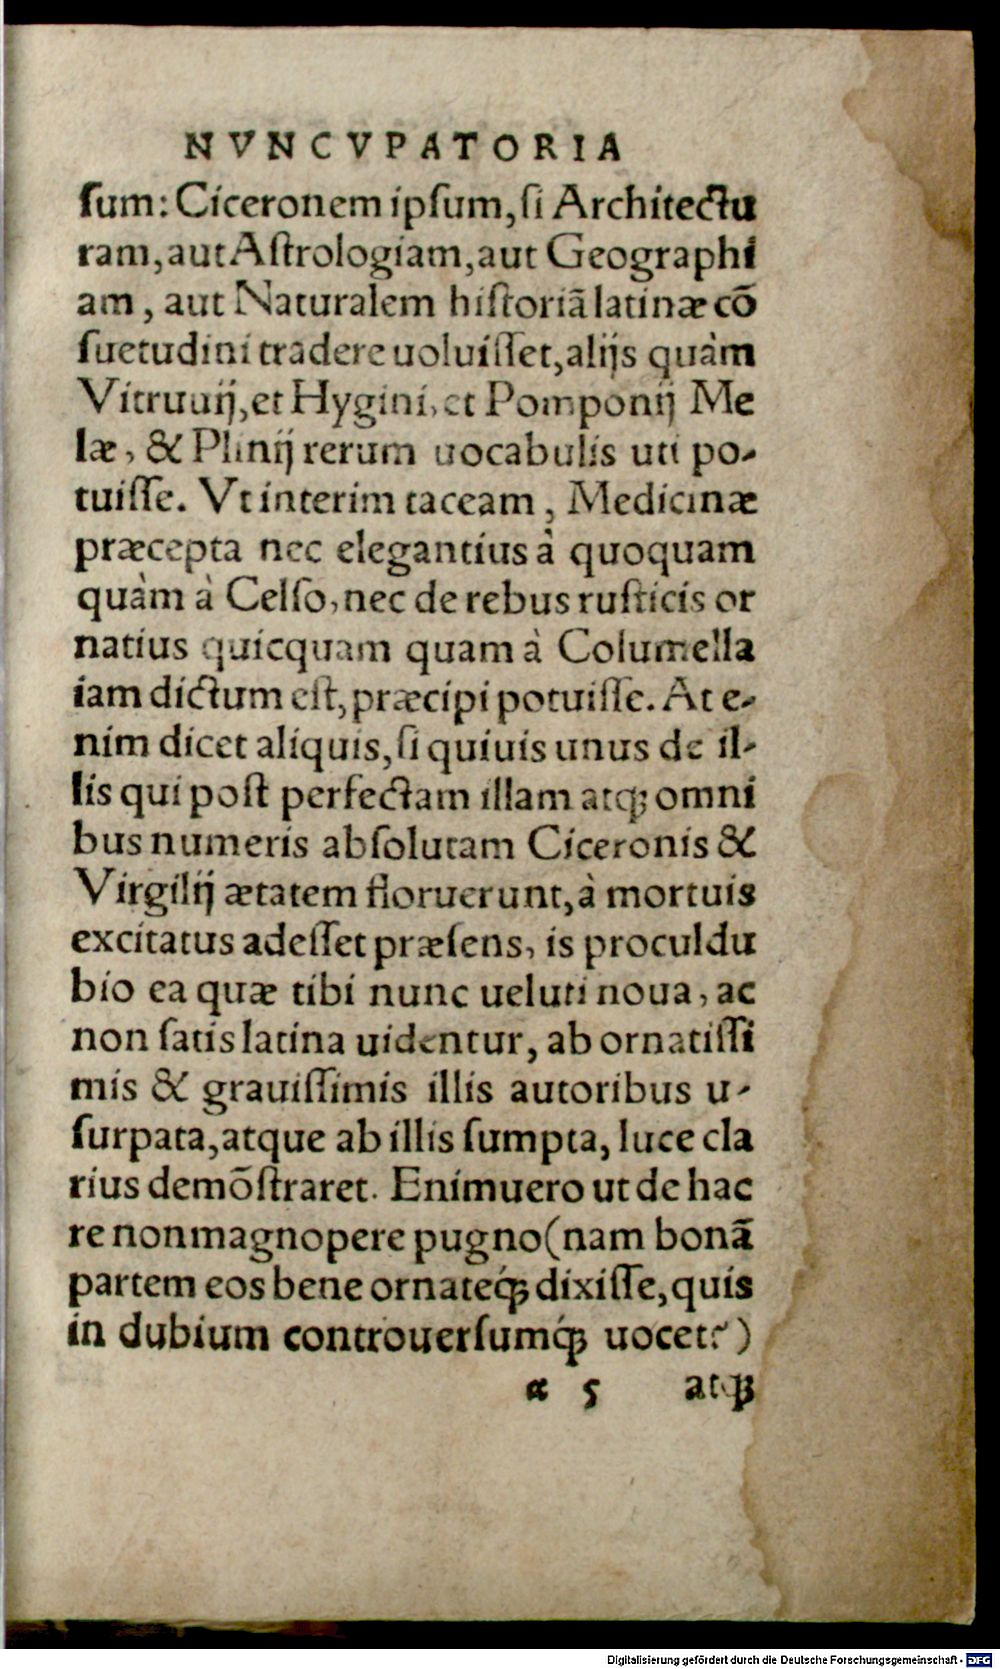 NVNCVPATORIA
ſum: Ciceronem ipſum, ſi Architectu
ram, aut Aſtrologiam, aut Geographi
am, aut Naturalem hiſtoriã latinæ cõ
ſuetudini tradere uoluiſſet, alijs quàm
Vitruuij, et Hygini, et Pomponij Me
læ, & Plinij rerum uocabulis uti po-
tuiſſe. Vt interim taceam, Medicinæ
præcepta nec elegantius à quoquam
quàm à Celſo, nec de rebus ruſticis or
natius quicquam quam à Columella
iam dictum eſt, præcipi potuiſſe. At e-
nim dicet aliquis, ſi quiuis unus de il-
lis qui poſt perfectam illam atq; omni
bus numeris abſolutam Ciceronis &
Virgilij ætatem floruerunt, à mortuis
excitatus adeſſet præſens, is proculdu
bio ea quæ tibi nunc ueluti noua, ac
non ſatis latina uidentur, ab ornatiſſi
mis & grauiſſimis illis autoribus u-
ſurpata, atque ab illis ſumpta, luce cla
rius demõſtraret. Enimuero ut de hac
re non magnopere pugno (nam bonã
partem eos bene ornateq́; dixiſſe, quis
in dubium controuerſumq́; uocet?)
α 5 atq;
Digitalisierung gefördert durch die Deutsche Forschungsgemeinschaft - DFG